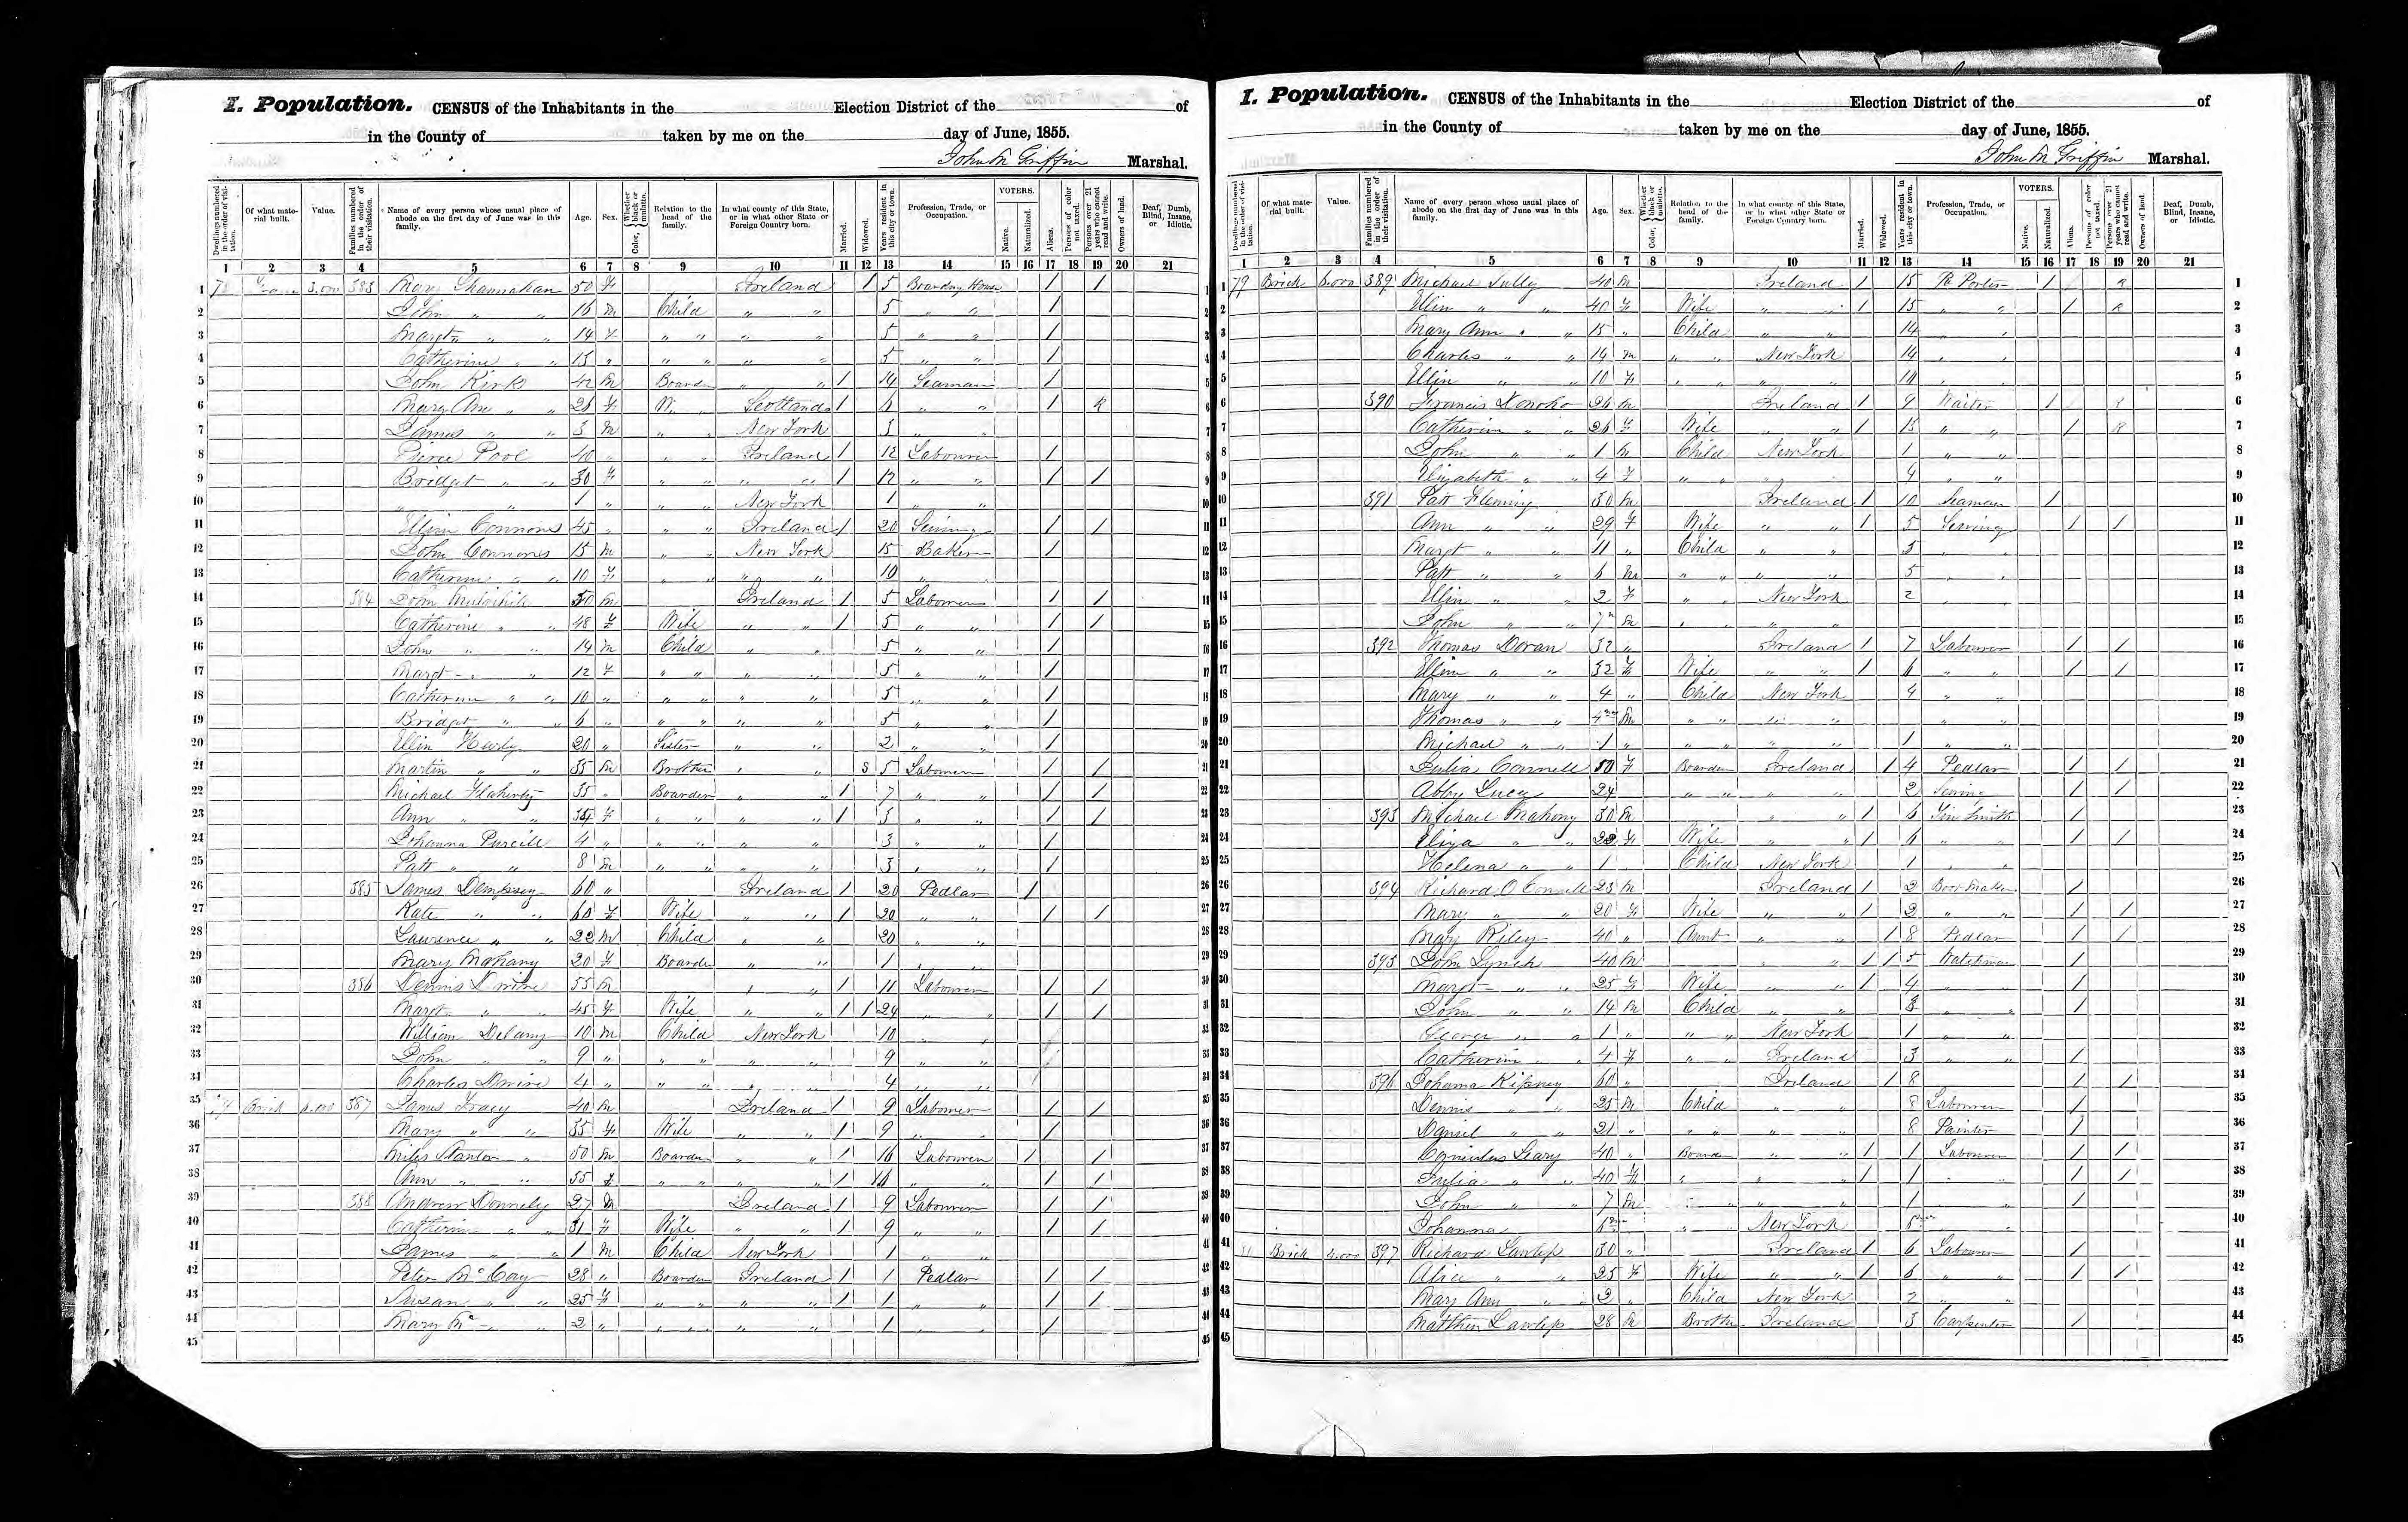 I. Population. CENSUS of the Inhabitants in the Election District of the of
in the County of taken by me on the day of June, 1855.
John M Griffin Marshal.
Dwellings numbered in the order of visitation.
Of what material built.
Value.
Families numbered in the order of their visitation.
Name of every person whose usual place of abode on the first day of June was in this family.
Age.
Sex.
Color, Whether black or mulatto.
Relation to the head of the family.
In what county of this State, or in what other State or Foreign Country born.
Married.
Widowed.
Years resident in this city or town.
Profession, Trade, or Occupation.
VOTERS.
Native.
Naturalized.
Aliens.
Persons of color not taxed.
Persons over 21 years who cannot read and write.
Owners of land.
Deaf, Dumb, Blind, Insane, or Idiotic.
1 2 3 4 5 6 7 8 9 10 11 12 13 14 15 16 17 18 19 20 21
1 78 3.000 383 Mary Shannahan 50 F Ireland 1 5 Boarding House 1 1
2 John " " 16 M Child " " 5 " " 1
3 Margt " " 14 F " " " " 5 " " 1
4 Catherine " " 13 " " " " " 5 " " 1
5 John Kirk 42 M Boarder " " 1 14 Seaman 1
6 Mary Ann " " 26 F " Scotland 1 6 " " 1 R
7 James " " 3 M " " New York 3 " "
8 Pierce Pool 40 " " " Ireland 1 12 Labourer 1
9 Bridget " " 30 F " " " " 1 12 " " 1 1
10 " " 1 " " " New York 1 " "
11 Ellin Connors 45 " " " Ireland 1 20 Sewing 1 1
12 John Connors 15 M " " New York 15 Baker 1
13 Catherine " " 10 F " " " " 10 "
14 384 John 50 M Ireland 1 5 Labourer 1 1
15 Catherine " " 48 F Wife " " 1 5 " " 1 1
16 John " " 14 M Child " " 5 " " 1
17 Margt " " 12 F " " " " 5 " " 1
18 Catherine " " 10 " " " " " 5 " " 1
19 Bridget " " 6 " " " " " 5 " " 1
20 Ellin Hurly 20 " Sister " " 2 " " 1
21 Martin " " 35 M Brother " " S 5 Labourer 1 1
22 Michael Flaherty 35 " Boarder " " 1 7 " " 1 1
23 Ann " " 34 F " " " " 1 3 " " 1 1
24 Johanna Purcill 4 " " " " " 3 " " 1
25 Patt " " 8 M " " " " 3 " " 1
26 385 James Dempsey 60 " Ireland 1 20 Pedlar 1
27 Kate " " 60 F Wife " " 1 20 " " 1 1
28 Lawrence " " 22 M Child " " 20 " "
29 Mary Mahany 20 F Boarder " " 1 " "
30 386 Dennis 55 M " " 1 11 Labourer 1 1
31 Margt " " 45 F Wife " " 1 1 24 " " 1 1
32 William Delany 10 M Child New York 10 " "
33 John " " 9 " " " " " 9 " "
34 Charles 4 " " " " " 4 " "
35 Brick 387 James Tracy 40 M Ireland 1 9 Labourer 1 1
36 Mary " " 35 F Wife " " 1 9 " " 1
37 Miles Stanton " 50 M Boarder " " 1 16 Labourer 1 1
38 Ann " " 55 F " " " " 1 16 " " 1 1
39 388 Andrew Donnely 27 M Ireland 1 9 Labourer 1 1
40 Catherine " " 31 F Wife " " 1 9 " " 1 1
41 James " " 1 M Child New York 1 " "
42 Peter McCoy 28 " Boarder Ireland 1 1 Pedlar 1 1
43 Susan " " 25 F " " " " 1 1 " " 1 1
44 Mary Mc " " 2 " " " " " 1 " " 1
45
I. Population. CENSUS of the Inhabitants in the Election District of the of
in the County of taken by me on the day of June, 1855.
John M Griffin Marshal.
Dwellings numbered in the order of visitation.
Of what material built.
Value.
Families numbered in the order of their visitation.
Name of every person whose usual place of abode on the first day of June was in this family.
Age.
Sex.
Color, Whether black or mulatto.
Relation to the head of the family.
In what county of this State, or in what other State or Foreign Country born.
Married.
Widowed.
Years resident in this city or town.
Profession, Trade, or Occupation.
VOTERS.
Native.
Naturalized.
Aliens.
Persons of color not taxed.
Persons over 21 years who cannot read and write.
Owners of land.
Deaf, Dumb, Blind, Insane, or Idiotic.
1 2 3 4 5 6 7 8 9 10 11 12 13 14 15 16 17 18 19 20 21
1 79 Brick 389 Michael Tully 40 M Ireland 1 15 Porter 1 R
2 Ellin " " 40 F Wife " " 1 15 " " 1 R
3 Mary Ann " " 15 " Child " " 14 " "
4 Charles " " 14 M " " New York 14 " "
5 Ellin " " 10 F " " " " 10 " "
6 390 Francis Donoho 26 M Ireland 1 9 Waiter 1 R
7 Catherin " " 26 F Wife " " 1 15 " " 1 R
8 John " " 1 M Child New York 1 " "
9 Elizabeth " " 4 F " " 4 " "
10 391 Patt Fleming 30 M Ireland 1 10 Seaman 1
11 Ann " " 29 F Wife " " 1 5 Sewing 1 1
12 Margt " " 11 " Child " " 5 " "
13 Patt " " 6 M " " " " 5 " "
14 Ellin " " 2 F " " New York 2 " "
15 John " " 7m M " " " "
16 392 Thomas Doran 32 " Ireland 1 7 Labourer 1 1
17 Ellin " " 32 F Wife " " 1 6 " " 1 1
18 Mary " " 4 " Child New York 4 " "
19 Thomas " " M " " " " " "
20 Michael " " 1 " " " " " 1 " "
21 Julia Connell 50 F Boarder Ireland 1 4 Pedlar 1 1
22 Abby Lucy 24 " " " " 2 Sewing 1 1
23 393 Michael Mahony 30 M " " 1 6 Tin Smith 1
24 Eliza " " 22 F Wife " " 1 6 " " 1 1
25 Helena " " 1 " Child New York 1 " "
26 394 Richard O Connell 23 M Ireland 1 2 Boot Maker 1
27 Mary " " 20 F Wife " " 1 2 " " 1 1
28 Mary Riley 40 " Aunt " " 1 8 Pedlar 1 1
29 395 John Lynch 40 M " " 1 1 5 Watchman 1
30 Margt " " 25 F Wife " " 1 4 " " 1
31 John " " 14 M Child " " 3 " " 1
32 George " " 1 " " " New York 1 " "
33 Catherin " " 4 F " " Ireland 3 " " 1
34 396 Johanna 60 " Ireland 1 8 1 1
35 Dennis " " 25 M Child " " 8 Labourer 1
36 Daniel " " 21 " " " " " 8 Painter 1
37 Cornielus Leary 40 " Boarder " " 1 1 Labourer 1 1
38 Julia " " 40 F " " " 1 1 " " 1 1
39 John " " 7 M " " " " 1 1
40 Johanna " " New York
41 Brick 397 Richard Lawless 30 " Ireland 1 6 Labourer 1
42 Alice " " 25 F Wife " " 1 6 " " 1 1
43 Mary Ann " " 2 " Child New York 2 " "
44 Matthew Lawless 28 M Brother Ireland 3 Carpenter 1
45